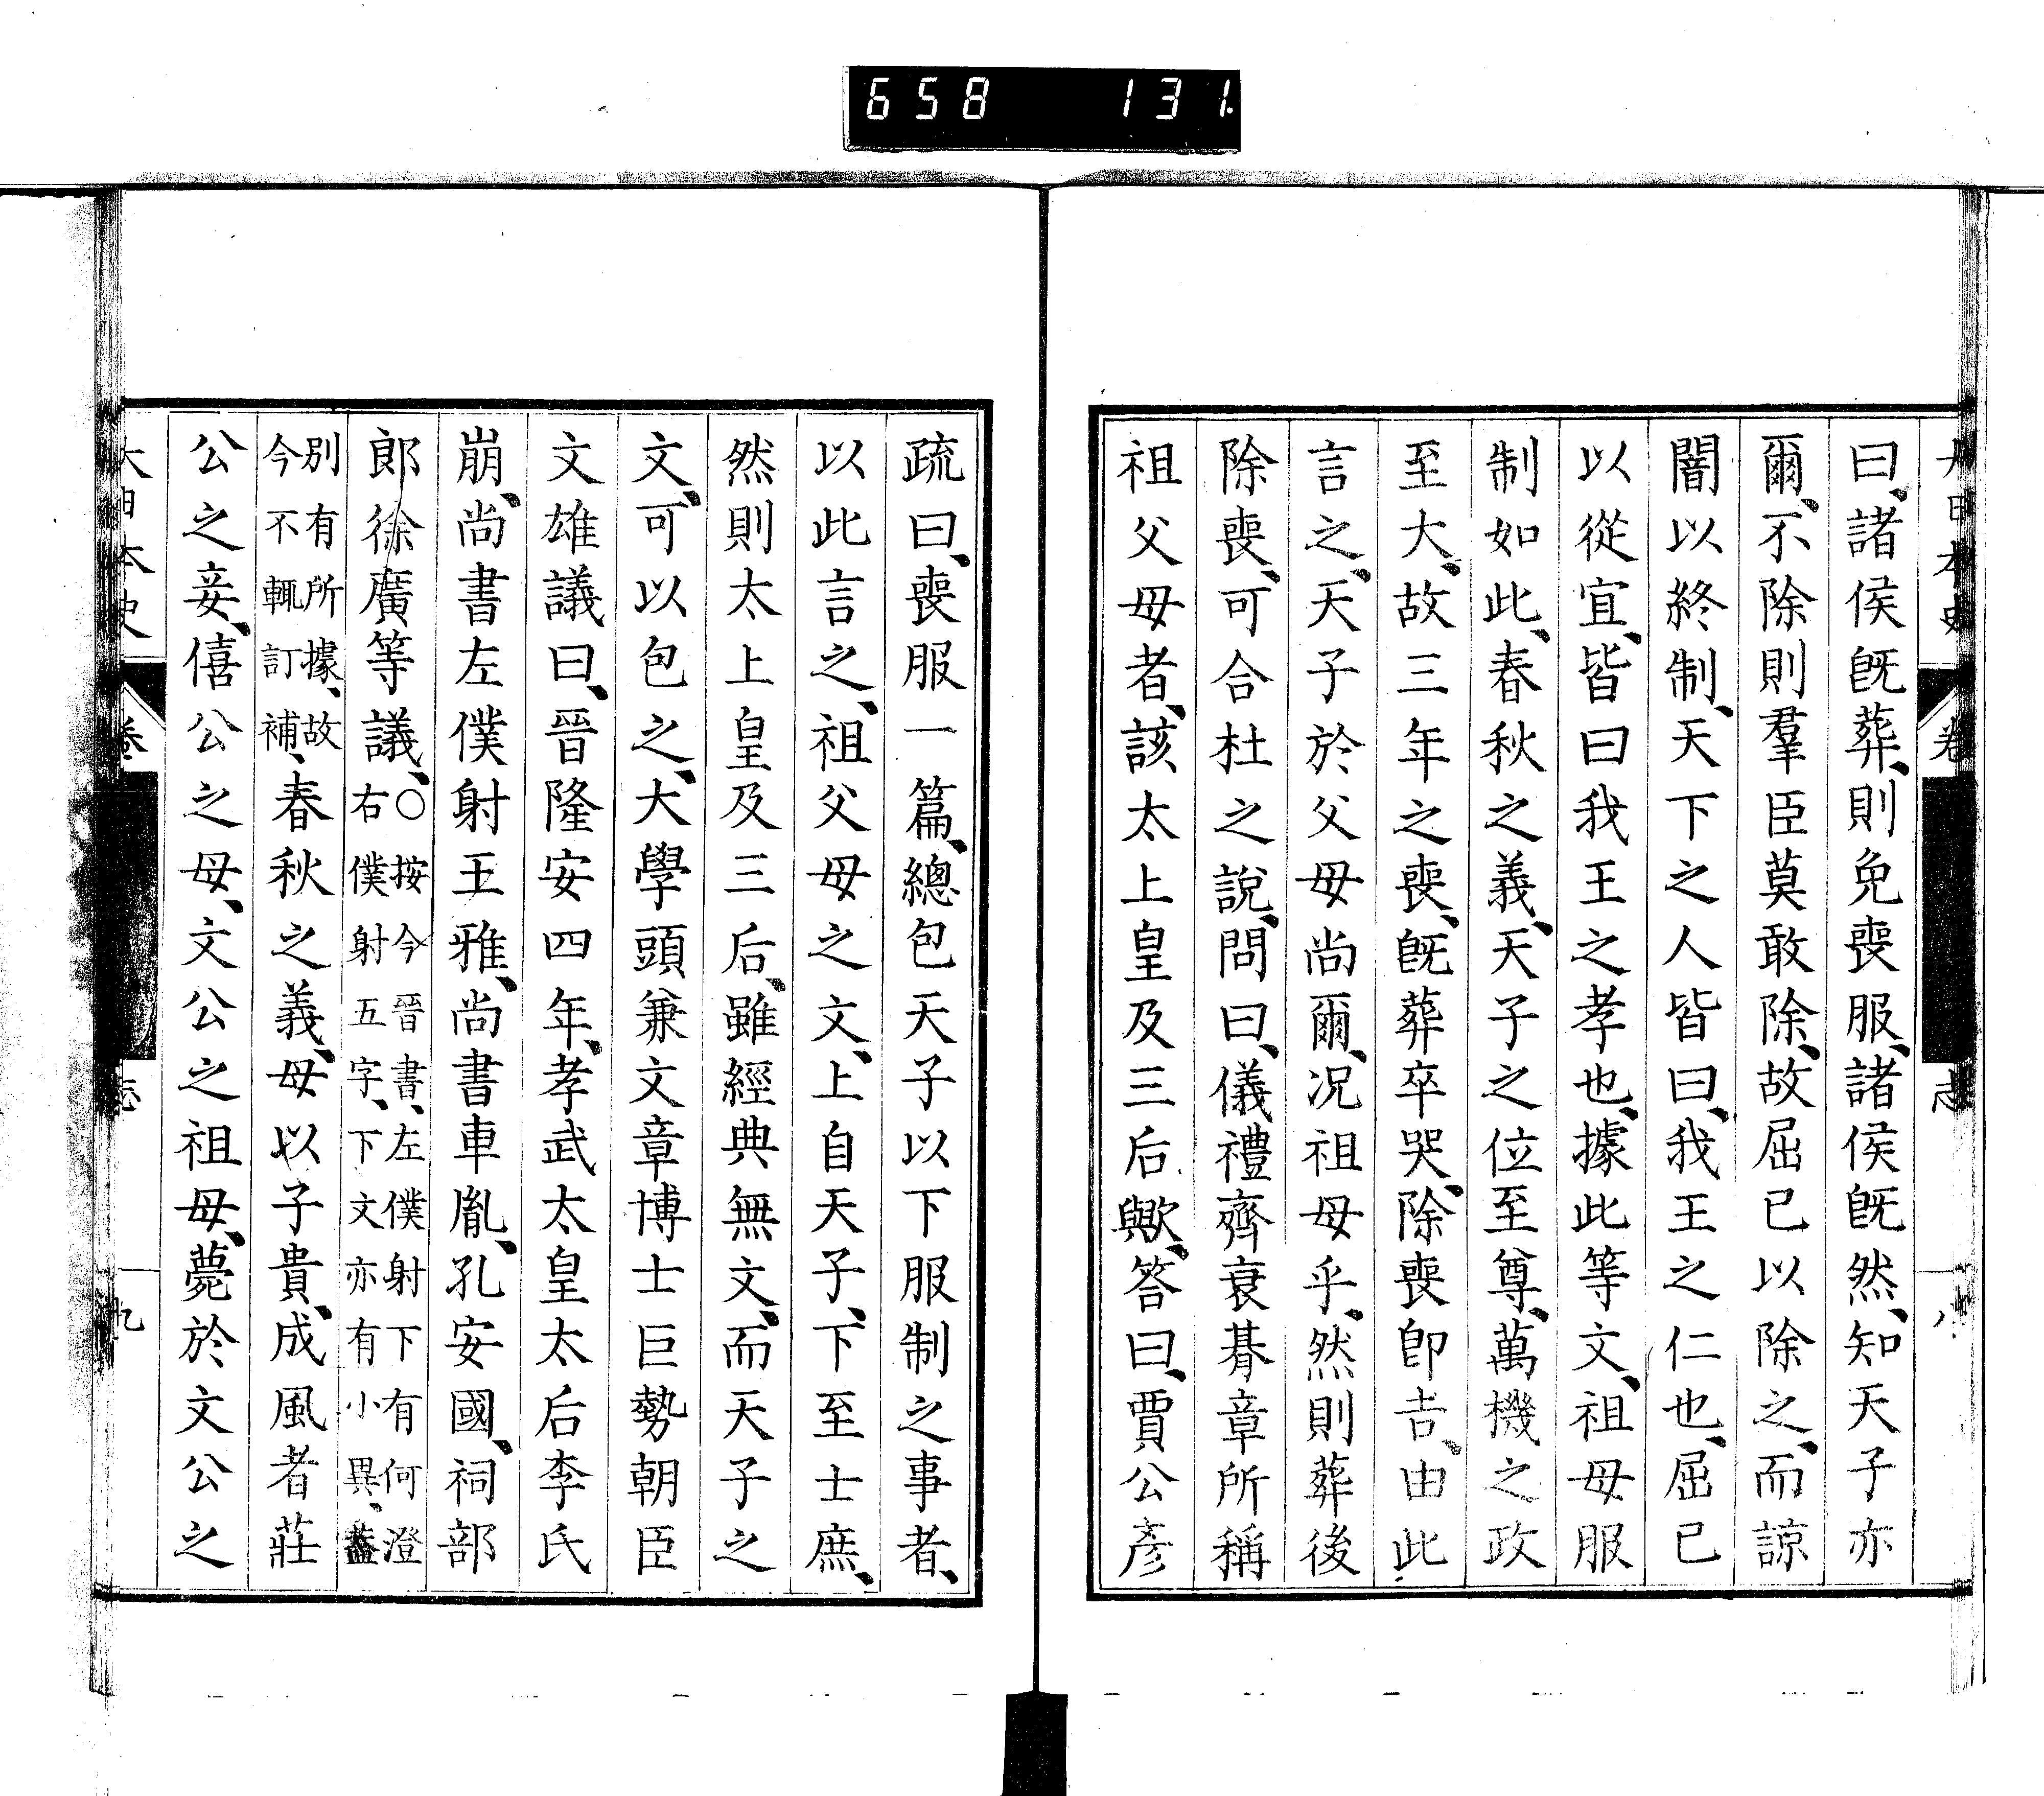 658 131
大日本史 卷 志 八
曰、諸侯旣葬、則免喪服、諸侯旣然、知天子亦
爾、不除則羣臣莫敢除、故屈已以除之、而諒
闇以終制、天下之人皆曰、我王之仁也、屈已
以從宜、皆曰我王之孝也、據此等文、祖母服
制如此、春秋之義、天子之位至尊、萬機之政
至大、故三年之喪、旣葬卒哭、除喪卽吉、由此
言之、天子於父母尚爾、况祖母乎、然則葬後
除喪、可合杜之說、問曰、儀禮齊衰朞章所稱
祖父母者、該太上皇及三后歟、答曰、賈公彥
疏曰、喪服一篇、總包天子以下服制之事者、
以此言之、祖父母之文、上自天子、下至士庶、
然則太上皇及三后、雖經典無文、而天子之
文、可以包之、大學頭兼文章博士巨勢朝臣
文雄議曰、晉隆安四年、孝武太皇太后李氏
崩、尚書左僕射王雅、尚書車胤、孔安國、祠部
郎徐廣等議、○按今晉書、左僕射下有何澄
右僕射五字、下文亦有小異、蓋
別有所據、故
今不輒訂補、春秋之義、母以子貴、成風者莊
公之妾、僖公之母、文公之祖母、薨於文公之
大日本史 卷 志 九